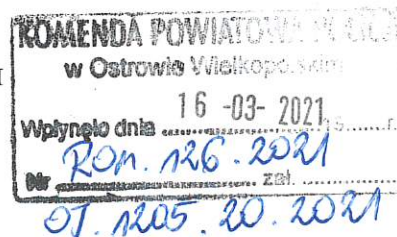 KOMENDA POWIATOWA POLICJI
w Ostrowie Wielkopolskim
Wpłynęło dnia 16 -03- 2021 r.
Nr Ron. 126. 2021 zał.
OT. 1205. 20. 2021